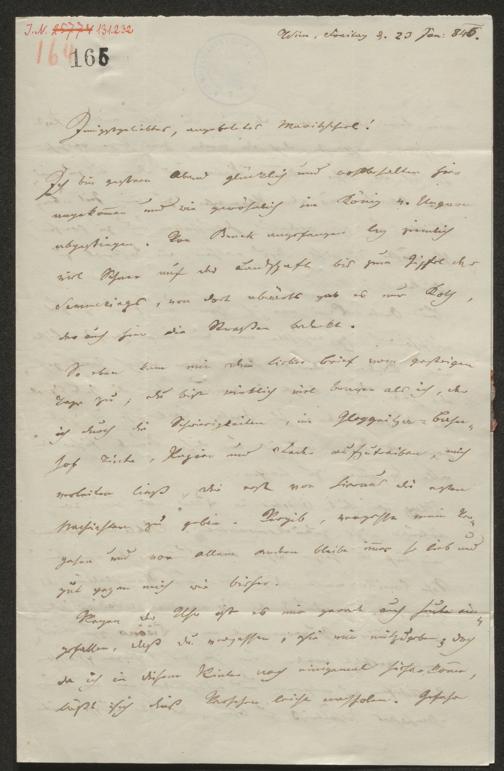 I.N. 25774 131.232
164
165
Wien, Freitag d. 23 Jän: 846.
Innigstgeliebtes, angebetetes Maritscherl!
Ich bin gestern Abend glücklich und wohlbehalten hier
angekommen und wie gewöhnlich im König v. Ungarn
abgestiegen. Von Bruck angefangen lag ziemlich
viel Schnee auf der Landschaft bis zum Gipfel des
Semmerings, von dort abwärts gab es nur Koth,
der auch hier die Straßen bedeckt.
So eben kam mir dein lieber Brief vom gestrigen
Tage zu, du bist wirklich viel braver als ich, der
ich durch die Schwierigkeiten, im Gloggnitzer-Bahn-
hof Tinte, Papier und aufzutreiben, mich
verleiten ließ, dir erst von hieraus die ersten
Nachrichten zu geben. Verzeih, vergesse mein Ver-
gehen und vor allem andern bleibe immer so lieb und
gut gegen mich wie bisher.
Wegen der Uhr ist es mir gerade auch heute ein-
gefallen, daß du vergessen, sie mir mitzugeben; doch
da ich in diesem Winter noch einigemal hieher komme,
läßt sich dieß leicht nachholen. Gestern